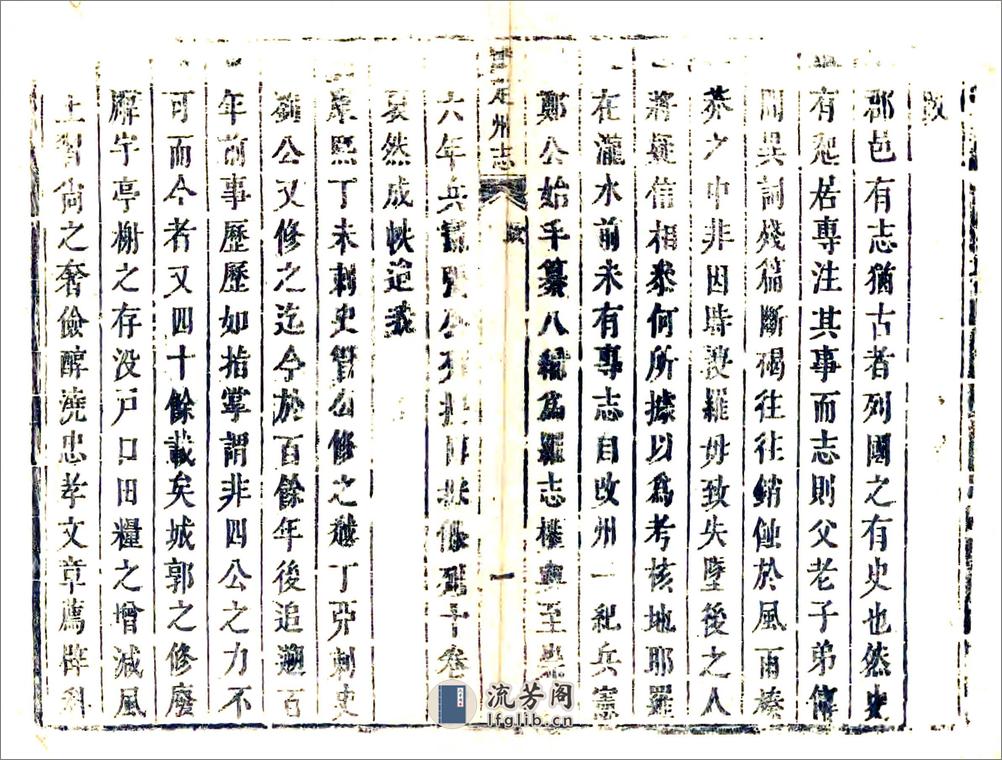 敘
郡邑有志猶古者列國之有史也然史
有起居專注其事而志則父老子弟傳
聞異詞殘篇斷碣往往銷蝕於風雨榛
莽之中非因時搜羅毋致失墜後之人
將疑信相參何所據以為考核地耶羅
在瀧水前未有專志自改州一紀兵憲
鄭公始手纂八編為羅志權輿至崇
定州志
敘
一
六年兵
十卷
裒然成帙迨我
康熙丁未刺史管公修之越丁亥刺史
公又修之迄今於百餘年後追遡百
年前事歷歷如指掌謂非四公之力不
可而今者又四十餘載矣城郭之修廢
廨宇亭榭之存没戸口田糧之增減風
土習尚之奢儉醇澆忠孝文章薦辟科
流芳阁
lfglib.cn